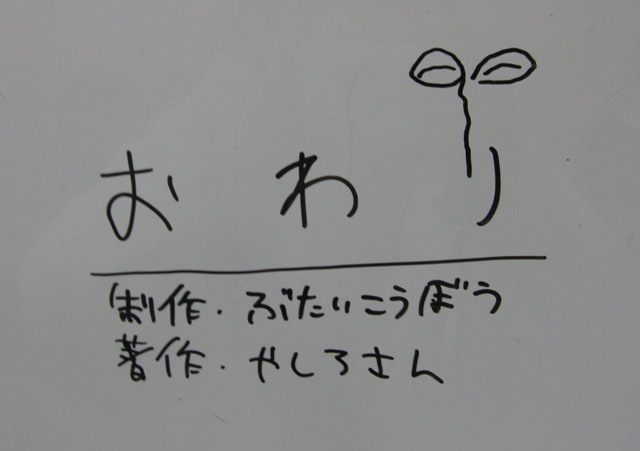 おわり
制作・ぶたいこうぼう
著作・やしろさん